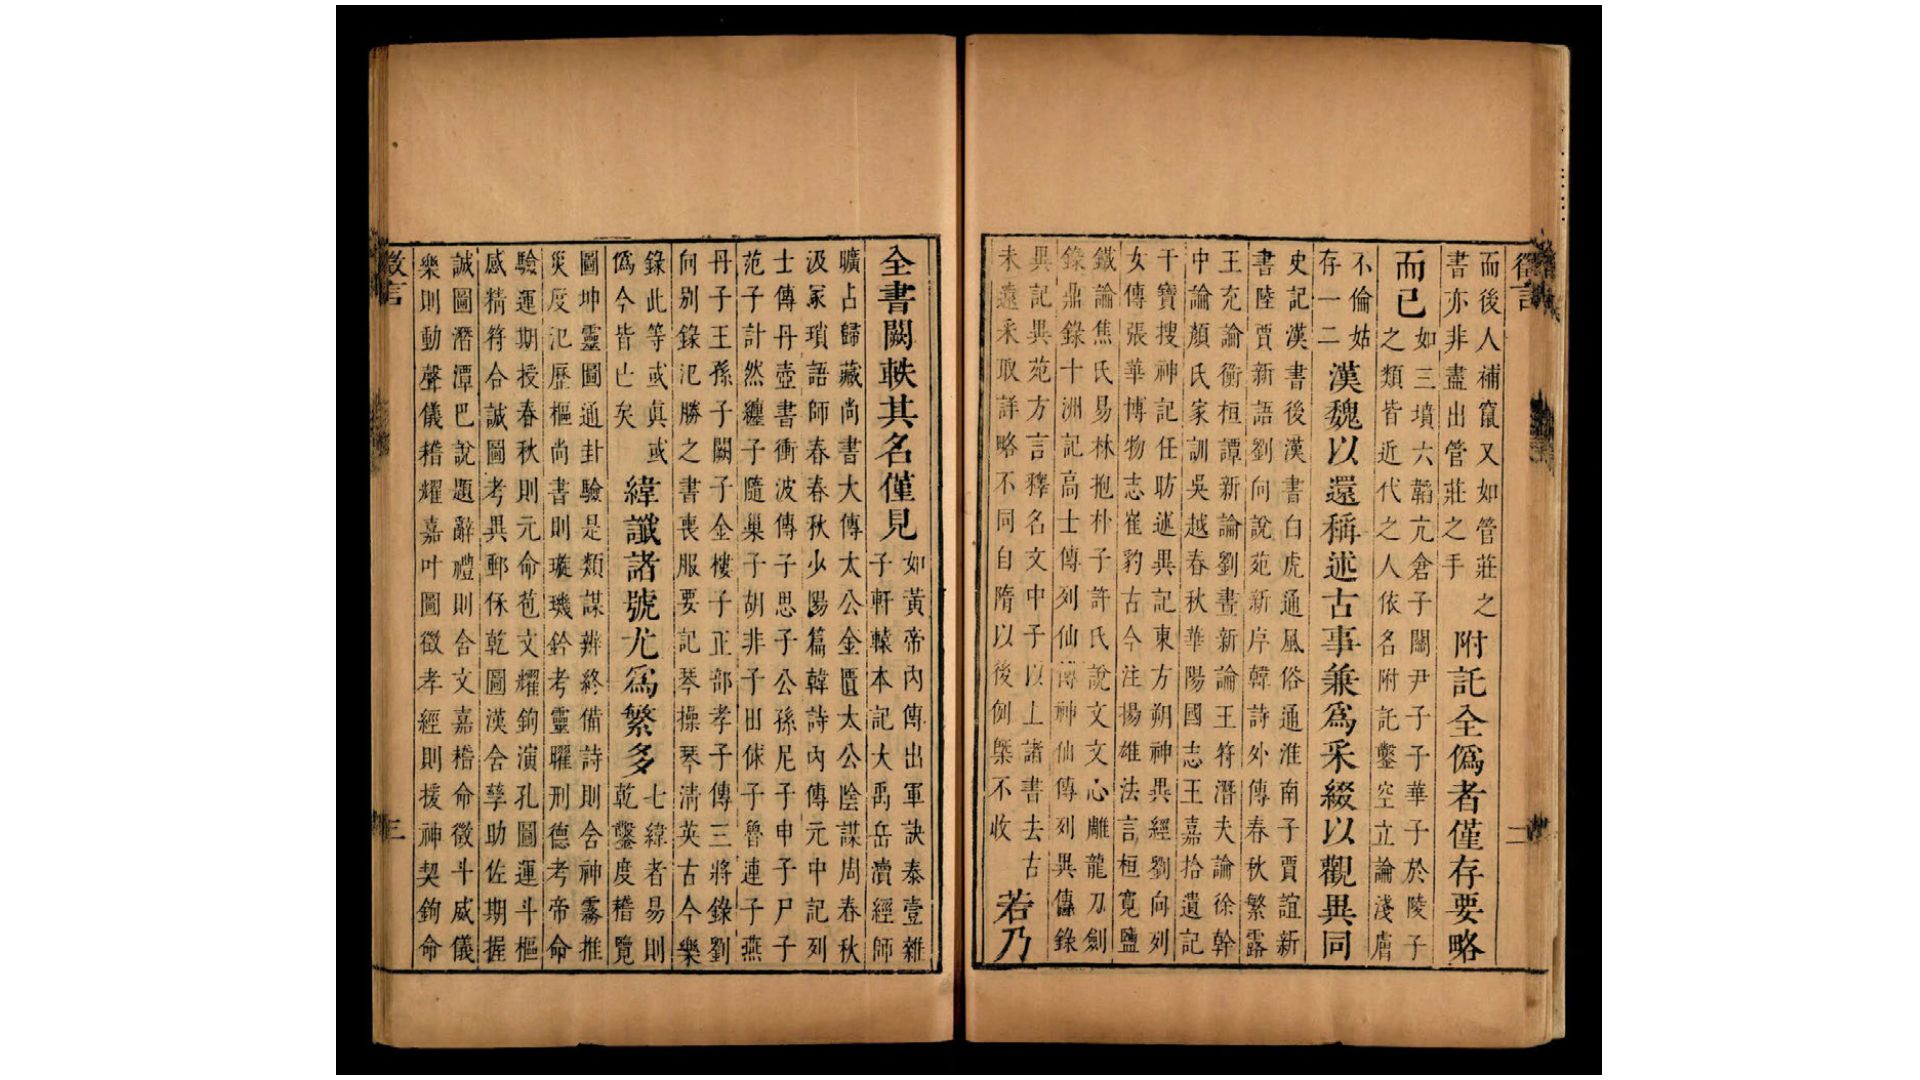 徵言
二
而後人補竄又如管莊之
書亦非盡出管莊之手
附託全偽者僅存要略
而已
如三墳六韜亢倉子關尹子子華子於陵子
之類皆近代之人依名附託鑿空立論淺膚
不倫姑
存一二
漢魏以還稱述古事兼爲采綴以觀異同
史記漢書後漢書白虎通風俗通淮南子賈誼新
書陸賈新語劉向說苑新序韓詩外傳春秋繁露
王充論衡桓譚新論劉晝新論王符潛夫論徐幹
中論顏氏家訓吳越春秋華陽國志王嘉拾遺記
干寶搜神記任昉述異記東方朔神異經劉向列
女傳張華博物志崔豹古今注揚雄法言桓寬鹽
鐵論焦氏易林抱朴子許氏說文文心雕龍刀劍
錄鼎錄十洲記高士傳列仙傳神仙傳列異傳錄
異記異苑方言釋名文中子以上諸書去古
未遠采取詳略不同自隋以後例槩不收
若乃
全書闕軼其名僅見
如黃帝內傳出軍訣泰壹雜
子軒轅本記大禹岳瀆經師
曠占歸藏尚書大傳太公金匱太公陰謀周春秋
汲冢瑣語師春春秋少陽篇韓詩內傳元中記列
士傳丹壺書衝波傳子思子公孫尼子申子尸子
范子計然纏子隨巢子胡非子田俅子魯連子燕
丹子王孫子闕子金樓子正部孝子傳三將錄劉
向别錄氾勝之書喪服要記琴操琴清英古今樂
錄此等或真或
僞今皆亡矣
緯讖諸號尤爲繁多
七緯者易則
乾鑿度稽覽
圖坤靈圖通卦驗是類謀辨終備詩則含神霧推
災度氾歷樞尚書則璇璣鈐考靈曜刑德考帝命
驗運期授春秋則元命苞文耀鉤演孔圖運斗樞
感精符合誠圖考異郵保乾圖漢含孳助佐期握
誠圖潛潭巴說題辭禮則含文嘉稽命徵斗威儀
樂則動聲儀稽耀嘉叶圖徵孝經則援神契鉤命
徵言
三